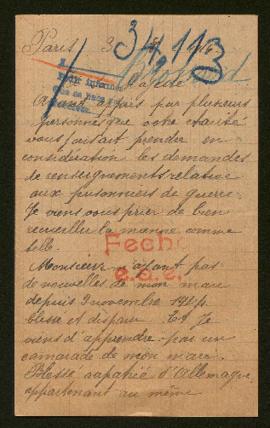 Paris 3
34113
Ayant appris par plusieurs
personnes que votre
vous faisait prendre en
considération les demandes
de renseignements relative
aux prisonniers de guerre
Je viens vous prier de bien
recueillir la mienne comme
telle.
Fecho
Monsieur n'ayant pas
e.a.c.
de nouvelles de mon mari
depuis 9 novembre 1914
blessé et disparu. Et Je
viens d'apprendre par un
camarade de mon mari.
Blessé rapatrié d'Allemagne,
appartenant au même